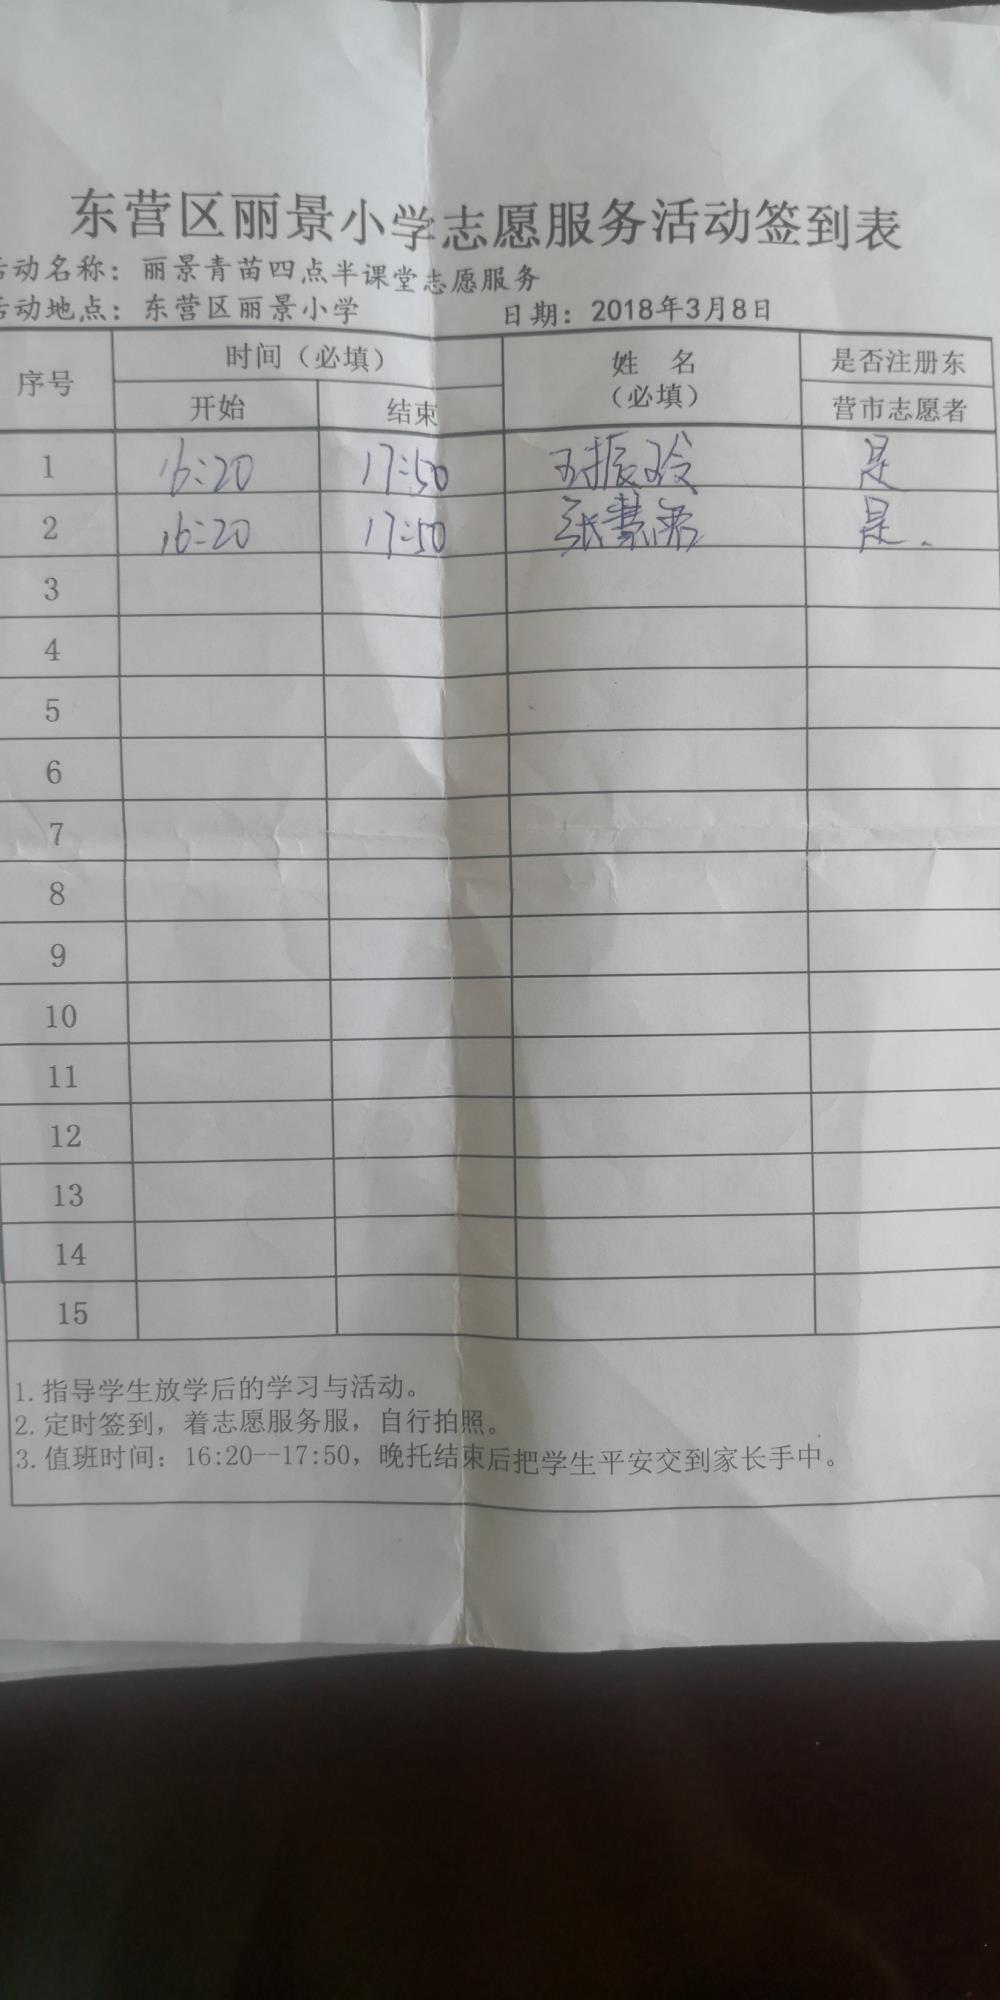 东营区丽景小学志愿服务活动签到表
活动名称：丽景青苗四点半课堂志愿服务
活动地点：东营区丽景小学 日期：2018年3月8日
序号 时间（必填） 姓 名 是否注册东
开始 结束 （必填） 营市志愿者
1 16:20 17:50 王振玲 是
2 16:20 17:50 张慧 是.
3
4
5
6
7
8
9
10
11
12
13
14
15
1.指导学生放学后的学习与活动。
2.定时签到，着志愿服务服，自行拍照。
3.值班时间：16:20--17:50，晚托结束后把学生平安交到家长手中。